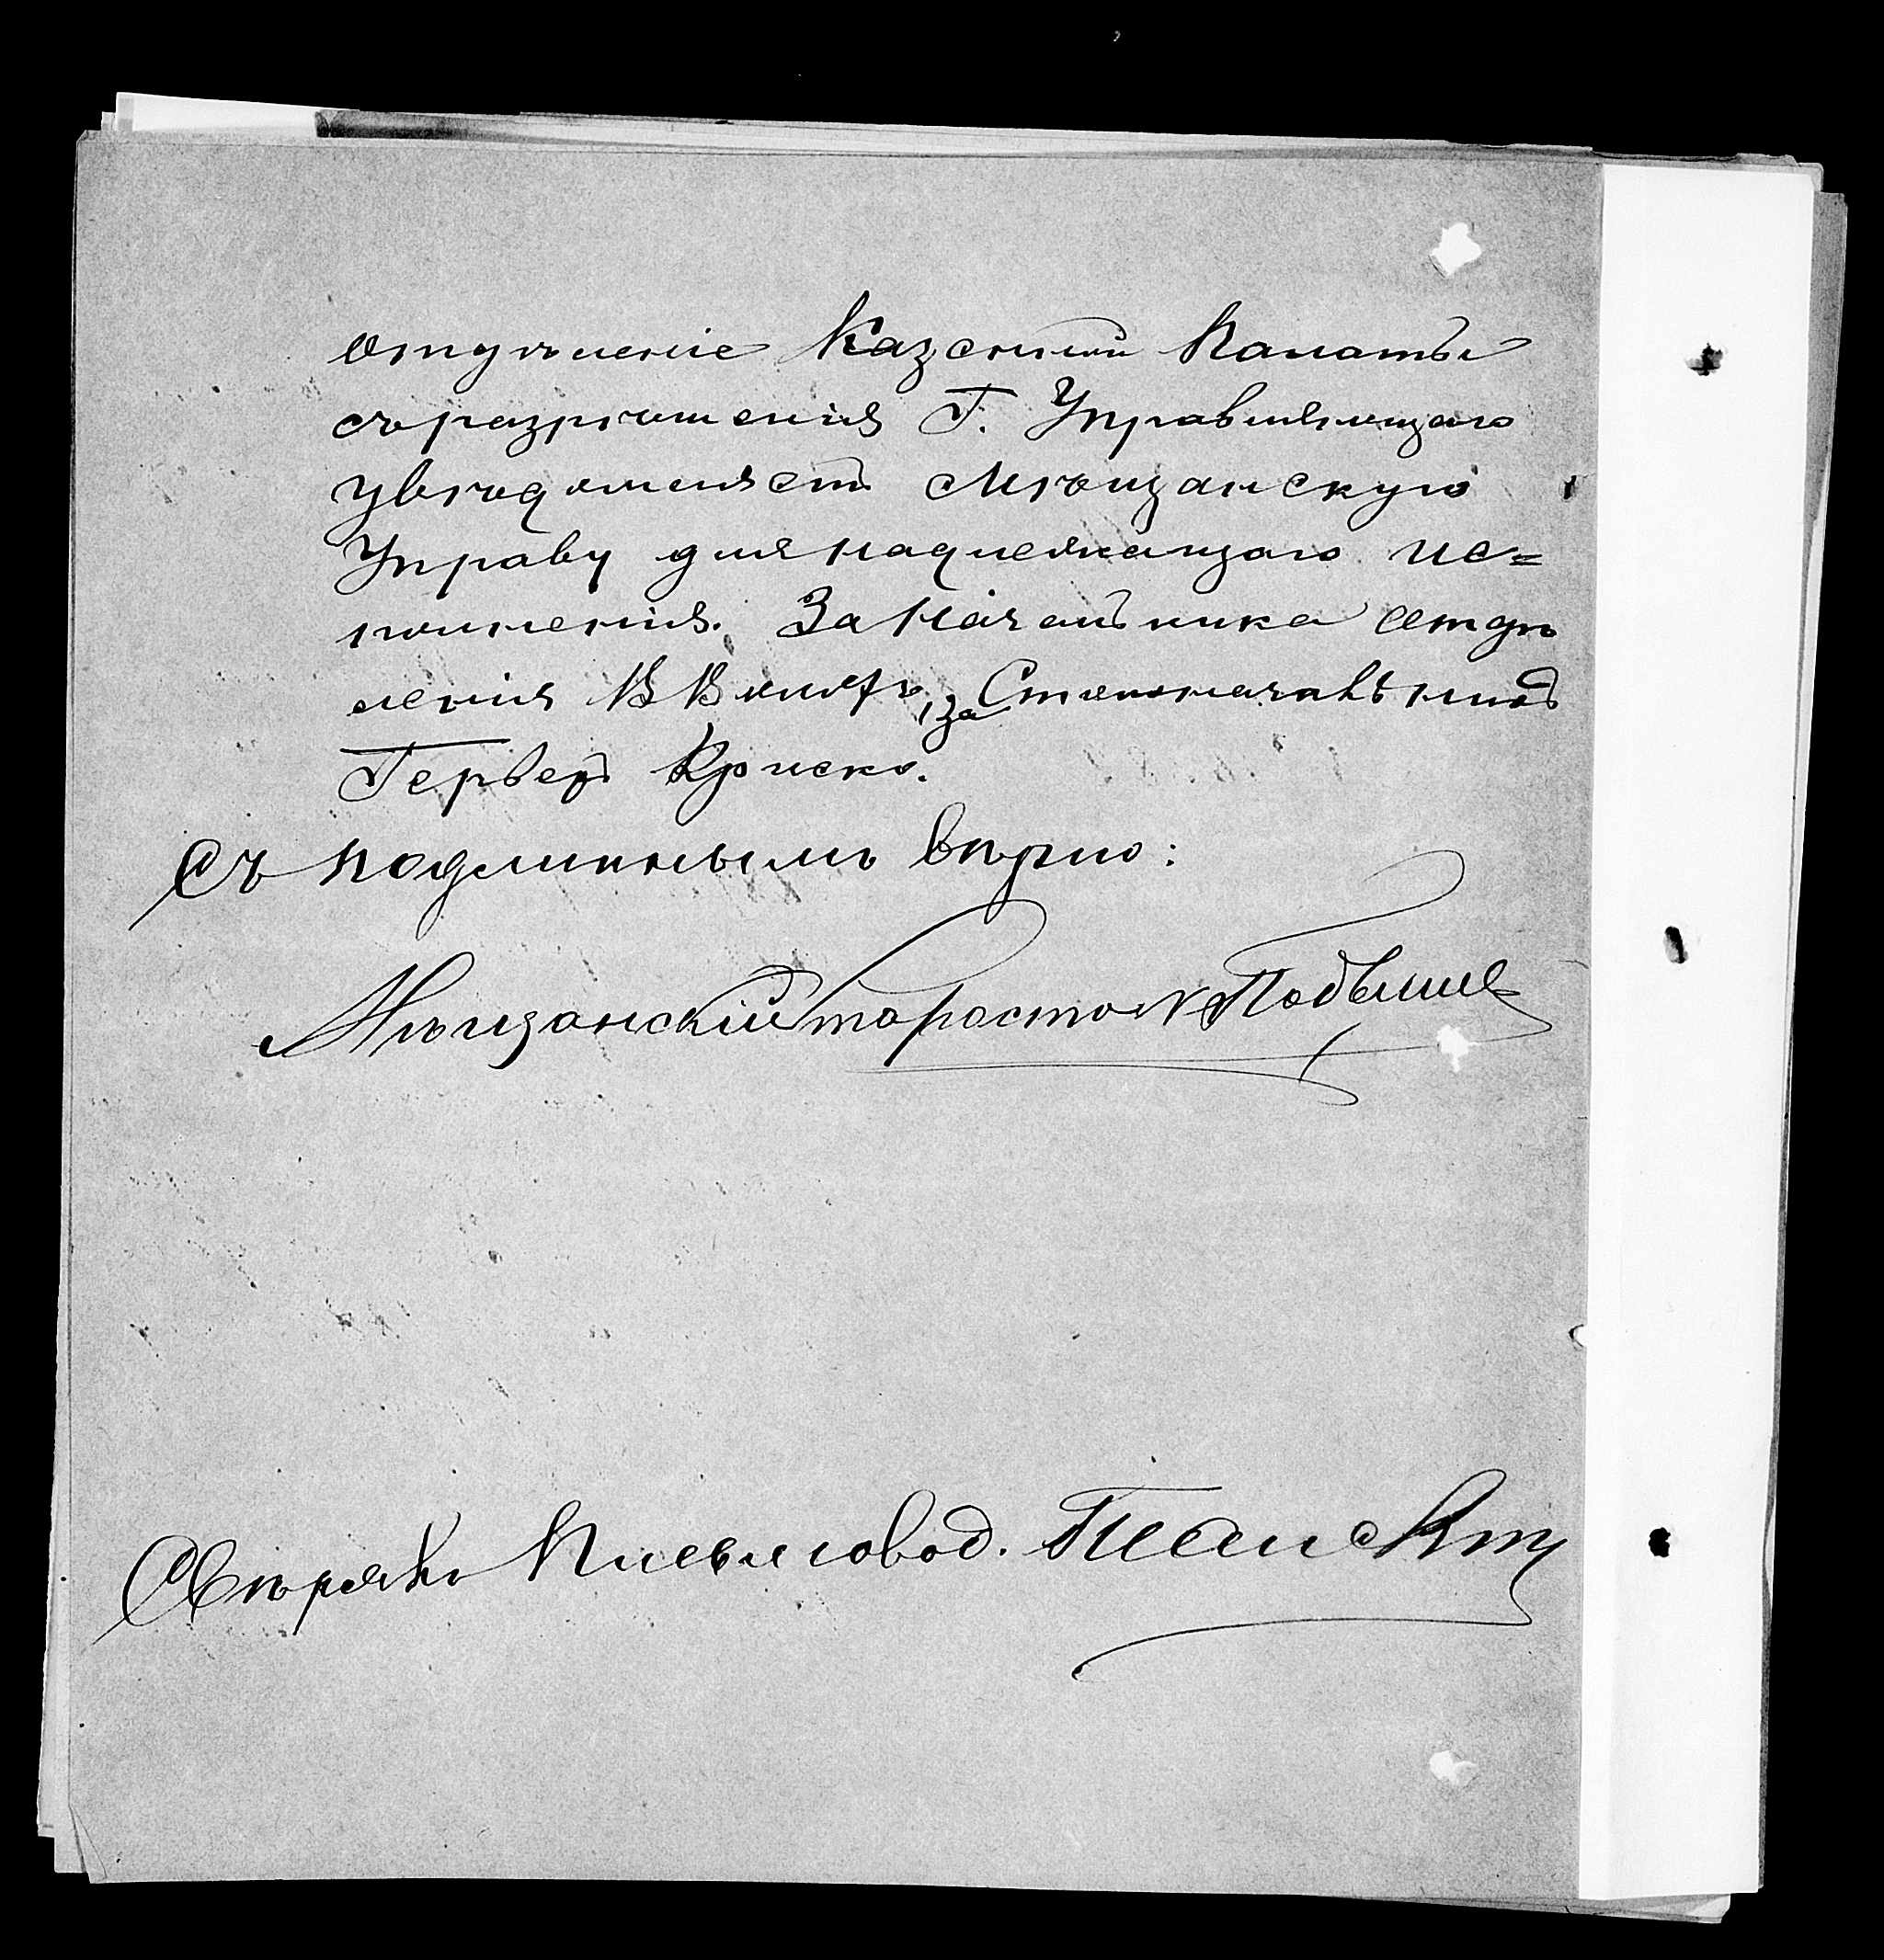 отдѣленіе Казенной Палаты
съ разрѣшенія Г. Управляющаго
увѣдомляетъ Мѣщанскую
Управу для надлежащаго ис=
полненія. За Начальника отдѣ
ленія за Столоначальника
Герберъ
Съ подлиннымъ вѣрно:
Мѣщанскій Староста
Свѣрялъ Письмовод.